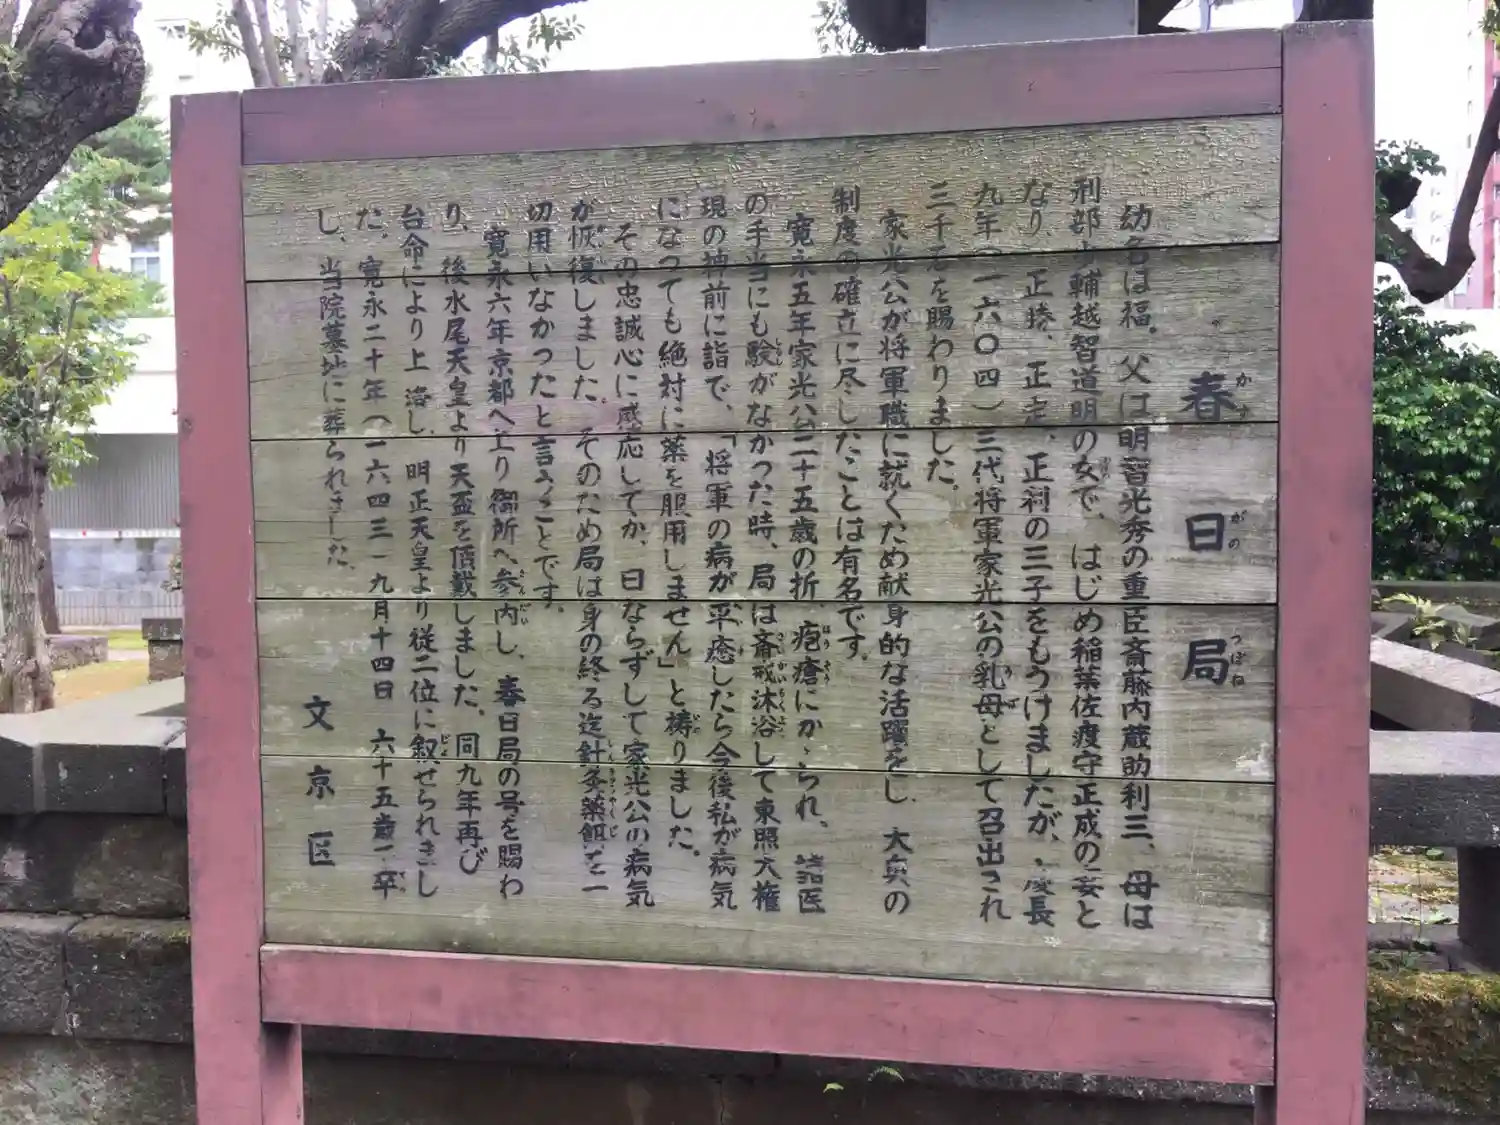 春日局
かすがのつぼね
幼名は福。父は明智光秀の重臣斎藤内蔵助利三、母は
刑部少輔越智道明の女で、はじめ稲葉佐渡守正成の妻と
なり、正勝、正定、正利の三子をもうけましたが、慶長
九年(一六〇四)三代将軍家光公の乳母として召出され
三千石を賜わりました。
家光公が将軍職に就くため献身的な活躍をし、大奥の
制度の確立に尽したことは有名です。
寛永五年家光公二十五歳の折、疱瘡にかゝられ、諸医
の手当にも験がなかった時、局は斎戒沐浴して東照大権
現の神前に詣で、「将軍の病が平癒したら今後私が病気
になっても絶対に薬を服用しません」と祷りました。
その忠誠心に感応してか、日ならずして家光公の病気
が恢復しました。そのため局は身の終る迄針灸薬餌を一
切用いなかったと言うことです。
寛永六年京都へ上り御所へ参内し、春日局の号を賜わ
り、後水尾天皇より天盃を頂戴しました。同九年再び
台命により上洛し、明正天皇より従二位に叙せられまし
た。寛永二十年(一六四三)九月十四日 六十五歳で卒
し、当院墓地に葬られました。
文京区